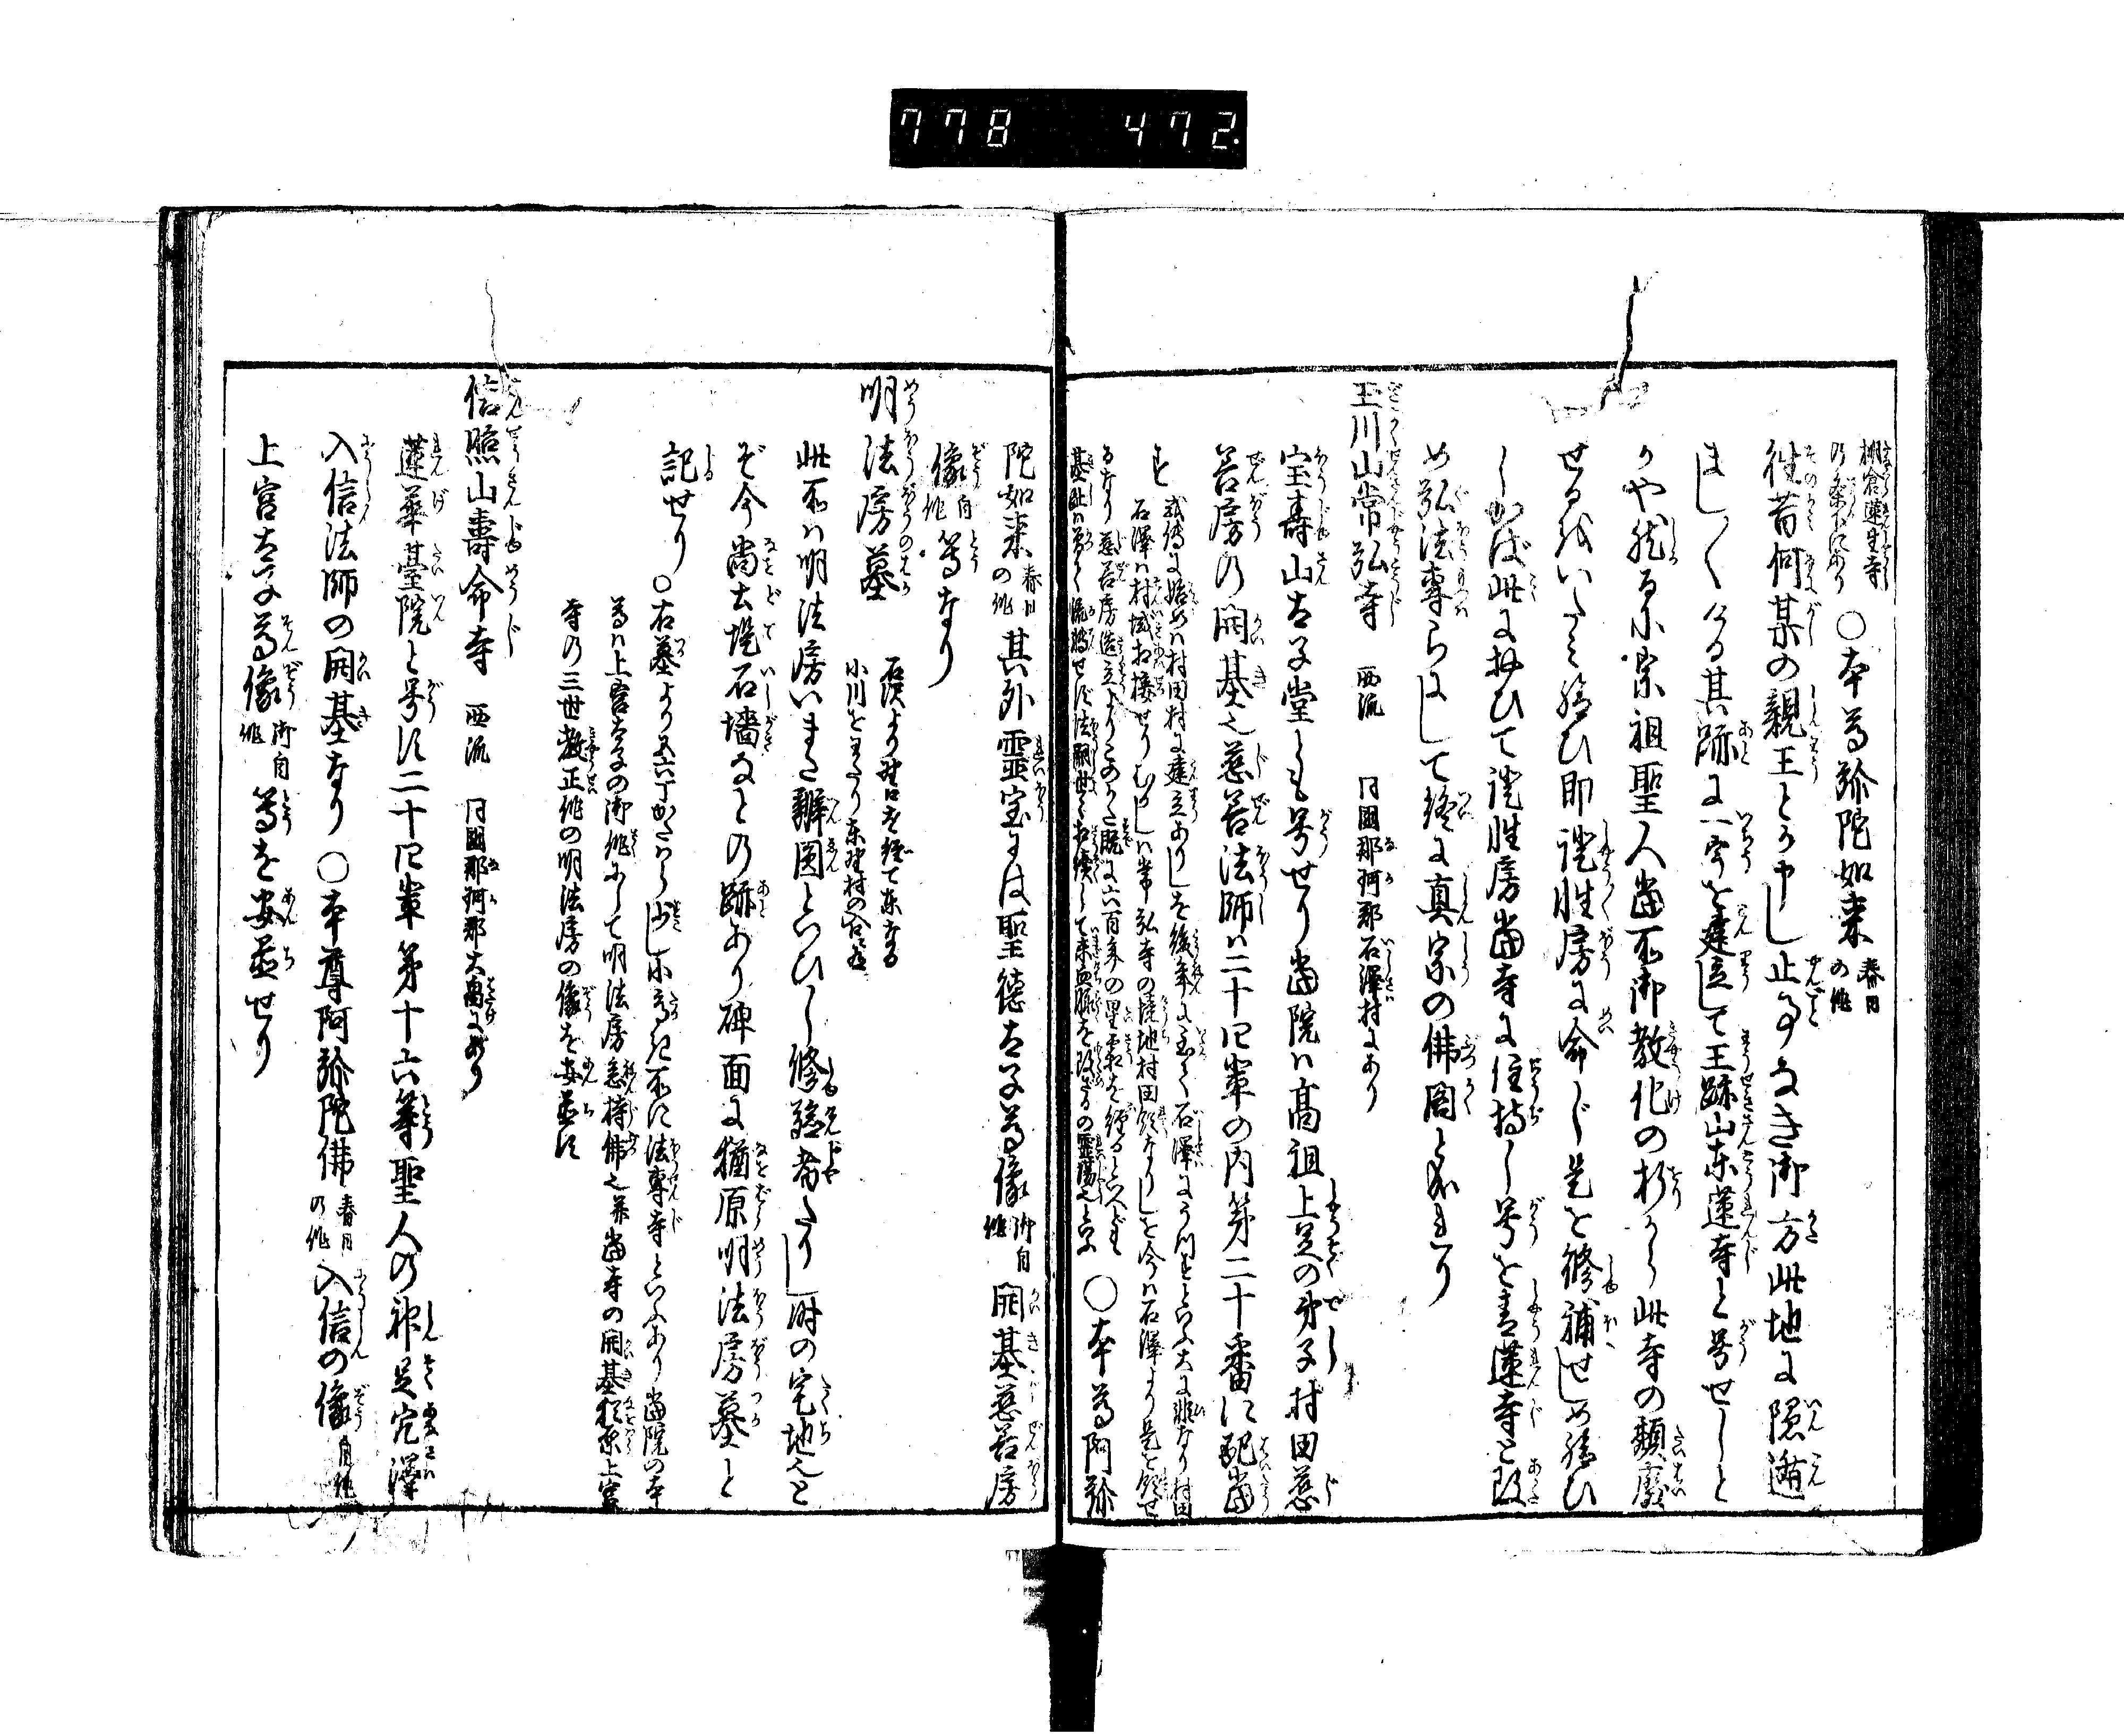 778 472.
棚倉蓮生寺
の条下にあり
○本尊弥陀如来 春日の作
往昔何某の親王とか申し止事なき御方此地に隠遁
まし〳〵ける其跡に一宇を建立して王跡山東蓮寺と号せしと
かや然るに宗祖聖人当所御教化の折から此寺の頽廃
せるをいたみ給ひ即證性房に命じ是を修補せしめ給ひ
しかば此に於ひて證性房当寺に住持し号を青蓮寺と改
め弘法専らにして終に真宗の佛閣となれり
玉川山常弘寺 西流 同國那珂郡石澤村にあり
宝寿山太子堂とも号せり当院ハ高祖上足の弟子村田慈
善房の開基也慈善法師ハ二十四輩の内第二十番に配当
す 或傳に始めハ村田村に建立ありしを後年に至て石澤にうつすといへ大に非なり村田
石澤ハ村域相接せりむかしハ常弘寺の境地村田領なりしを今ハ石澤より是を領せ
るなり慈善房造立よりこのかた既に六百年の星霜を經るといへども
基趾ハ曽て流轉せず法嗣世々相續して未血脈を改ざるの靈場也と云
○本尊阿弥
陀如来 春日の作 其外靈宝には聖徳太子尊像 御自作 開基慈善房
像 自作 等なり
明法房墓 石沢より野口を經て東なる
小川をわたり東野村の
此所ハ明法房いまだ辨圓といひし修驗者たりし時の宅地也と
ぞ今尚土堤石墻なとの跡あり碑面に猶原明法房墓と
記せり ○右墓より五六丁かたハら少し小高き所に法専寺といふあり当院の本
尊ハ上宮太子の御作にして明法房念持佛也并当寺の開基楢原上宮
寺の三世教正作の明法房の像を安置す
信照山壽命寺 西流 同國那珂郡大畠にあり
蓮華臺院と号す二十四輩第十六番聖人の神足穴澤
入信法師の開基なり ○本尊阿弥陀佛 春日の作 入信の像 自作
上宮太子尊像 御自作 等を安置せり